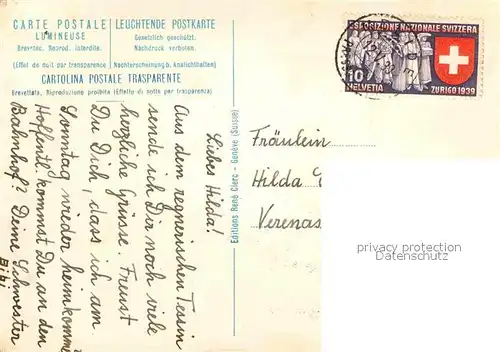 CARTE POSTALE
LUMINEUSE
Brevetée. Reprod. interdite.
(Effet de nuit par transparence)
LEUCHTENDE POSTKARTE
Gesetzlich geschützt.
Nachdruck verboten.
(Nachterscheinung b. Anslichthalten)
CARTOLINA POSTALE TRASPARENTE
Brevettata, Riproduzione proibita (Effetto di notte per trasparenza)
Liebes Hilda!
Aus dem regnerischen Tessin
sende ich Dir noch viele
herzliche Grüsse. Freust
Du Dich, dass ich am
Sonntag wieder heimkomme
Hoffentl. kommst Du an den
Bahnhof? Deine Schwester
Bibi
Editions René Clerc - Genève (Suisse)
ESPOSIZIONE NAZIONALE SVIZZERA
10
HELVETIA
ZURIGO 1939
Fräulein
Hilda
Verenas
privacy protection
Datenschutz